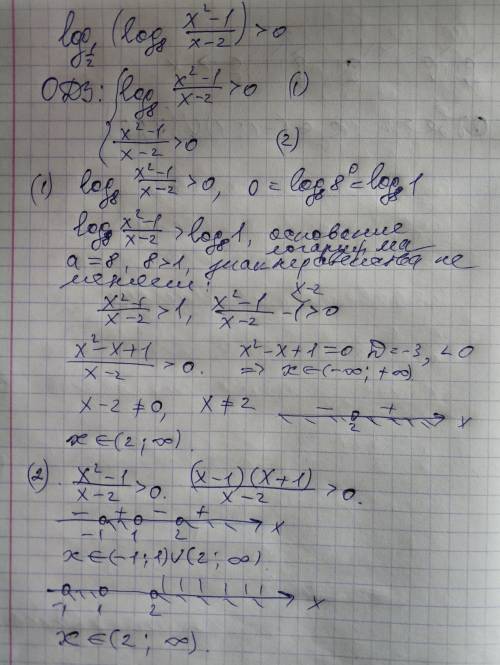 log_{1/2} (log_8 (x²-1)/(x-2)) > 0
ОДЗ: { log_8 (x²-1)/(x-2) > 0 (1)
{ (x²-1)/(x-2) > 0 (2)
(1) log_8 (x²-1)/(x-2) > 0, 0 = log_8 8⁰ = log_8 1
log_8 (x²-1)/(x-2) > log_8 1, основание логарифма
a = 8, 8 > 1, знак неравенства не
меняем:
(x²-1)/(x-2) > 1, (x²-1)/(x-2) - 1^{x-2} > 0
(x²-x+1)/(x-2) > 0. x²-x+1=0 D=-3, <0
=> x∈(-∞; +∞)
x-2 ≠ 0, x ≠ 2 - + 2 x
x∈(2; ∞).
(2). (x²-1)/(x-2) > 0. ((x-1)(x+1))/(x-2) > 0.
- + - + -1 1 2 x
x∈(-1; 1)∪(2; ∞).
-1 1 2 x
x∈(2; ∞).